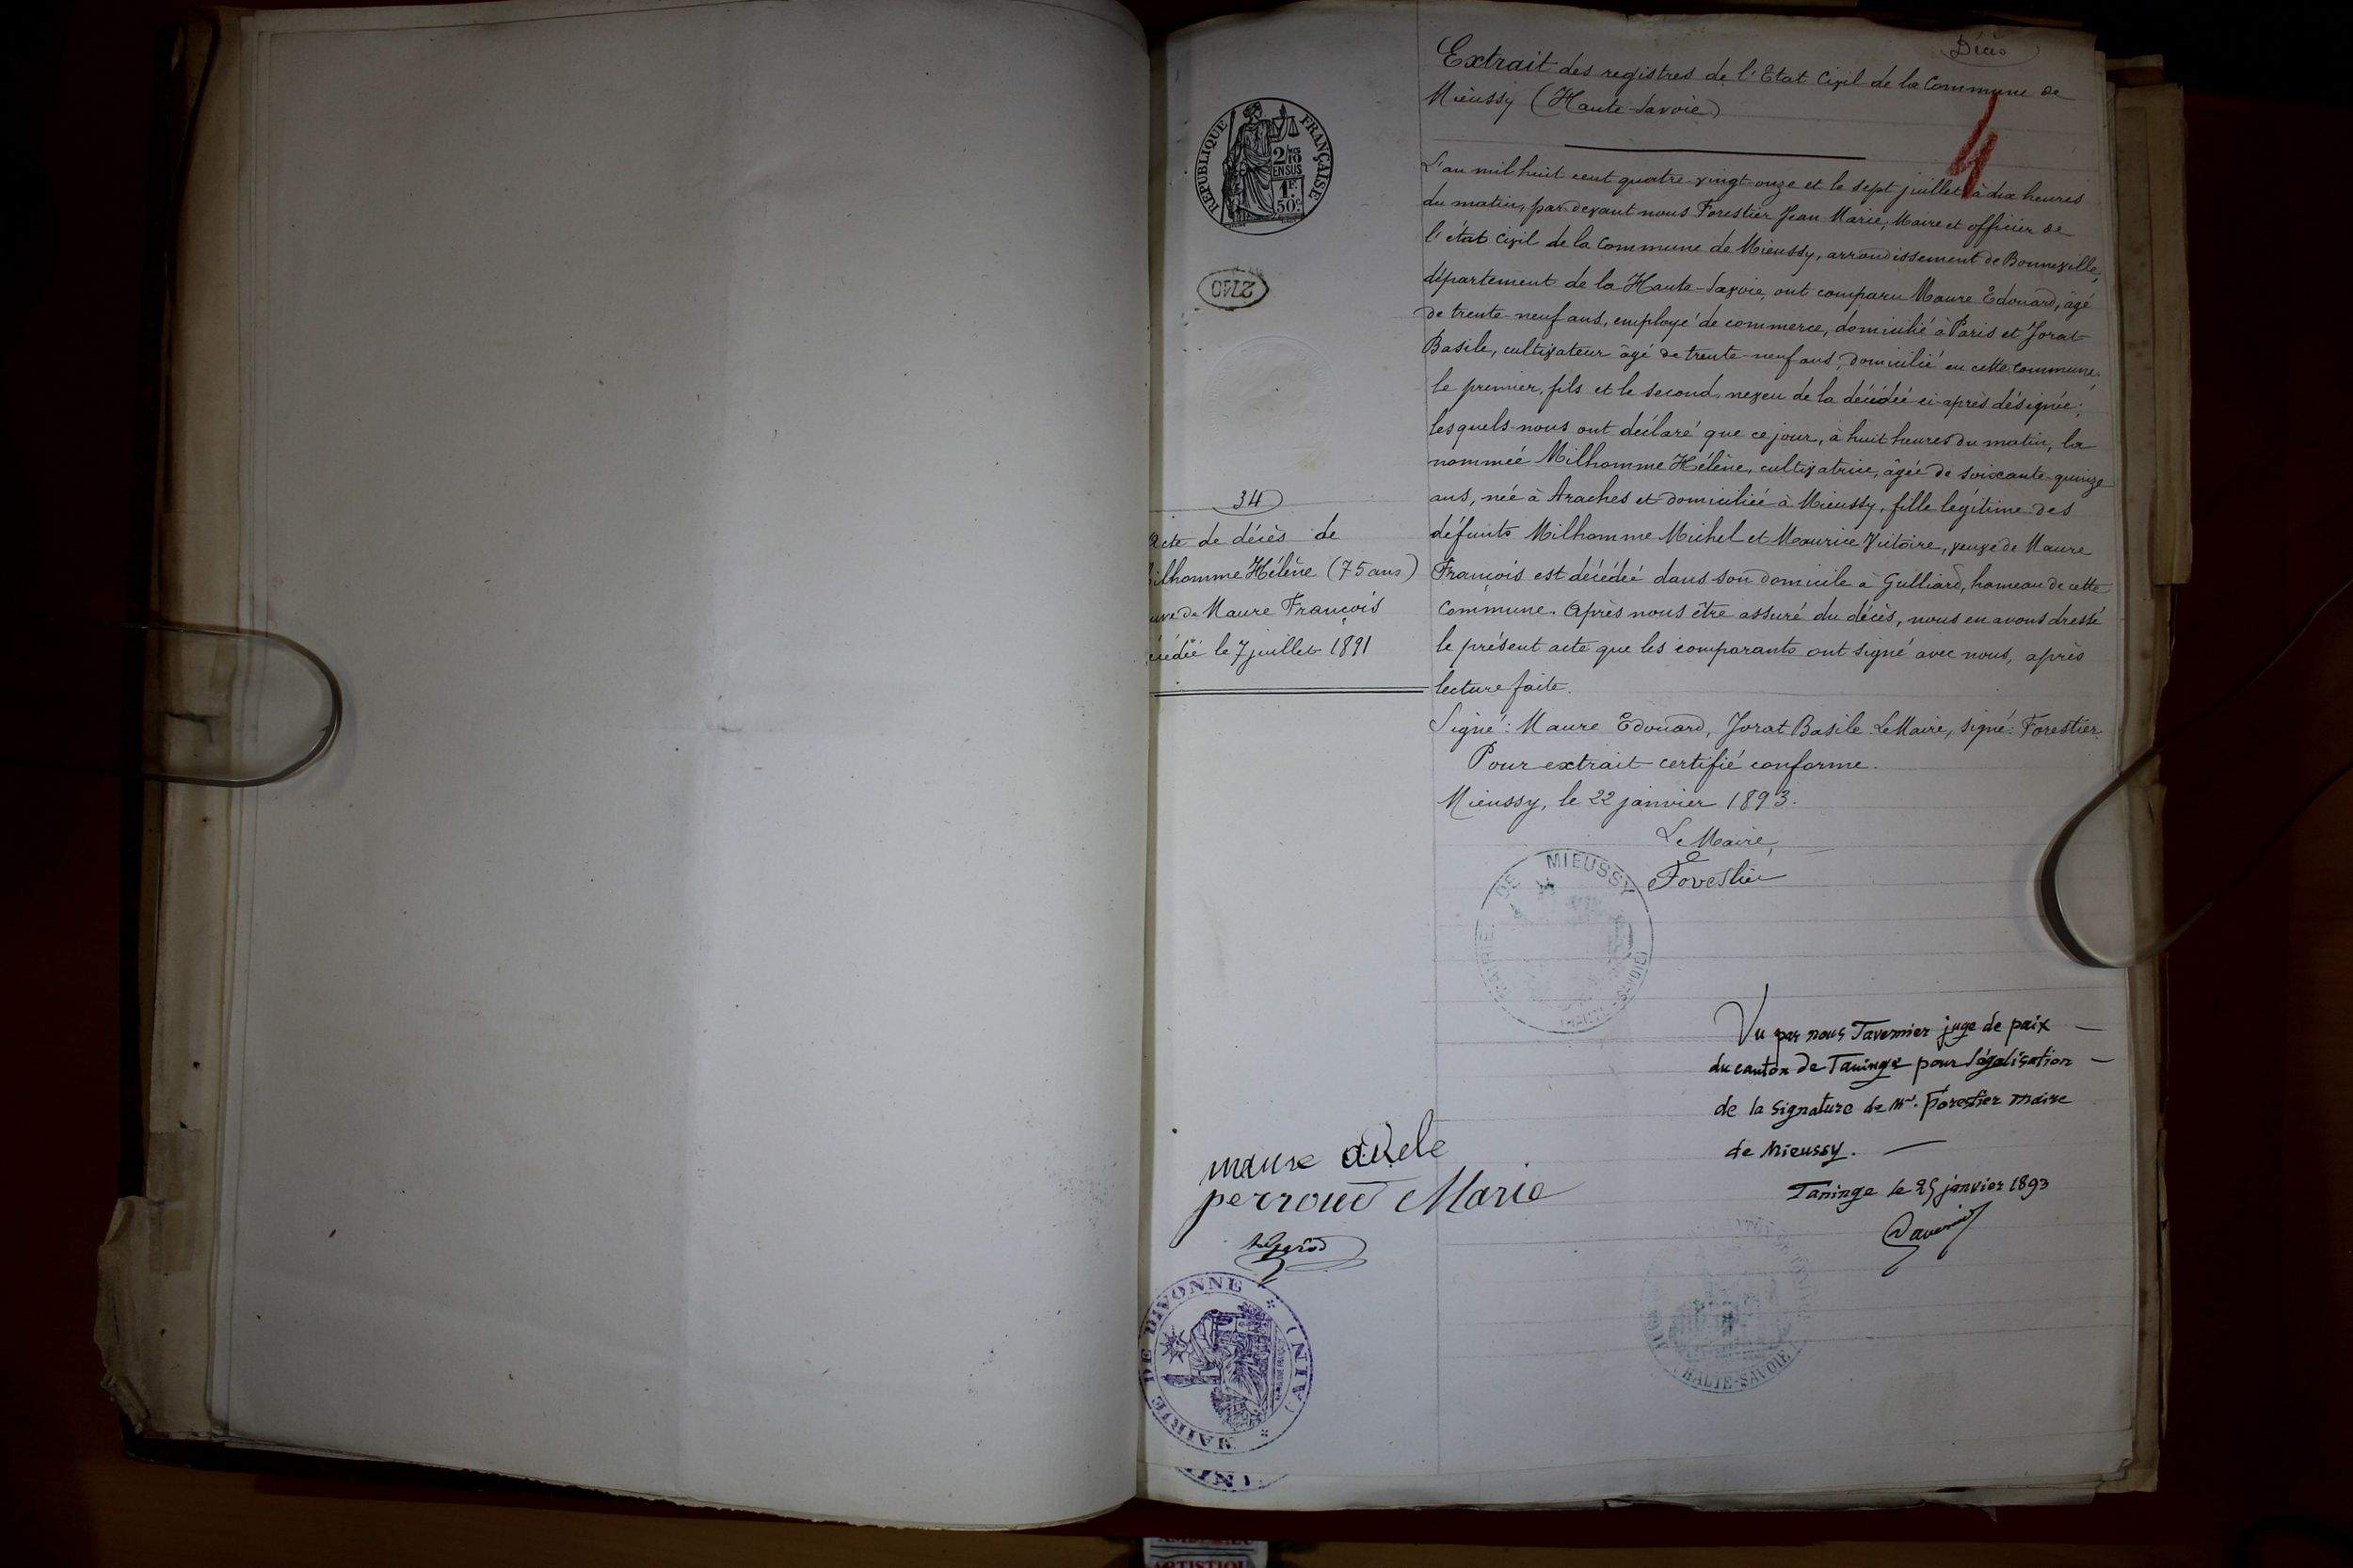 Décès
Extrait des registres de l'Etat Civil de la Commune de
Mieussy (Haute-Savoie)
4
REPUBLIQUE FRANÇAISE
2/10 EN SUS
1F. 50c
2740
L'an mil huit cent quatre-vingt-onze et le sept juillet à dix heures
du matin, par devant nous Forestier Jean-Marie, Maire et officier de
l'état civil de la Commune de Mieussy, arrondissement de Bonneville,
département de la Haute-Savoie, ont comparu Maure Edouard, âgé
de trente-neuf ans, employé de commerce, domicilié à Paris et Jorat
Basile, cultivateur âgé de trente-neuf ans, domicilié en cette commune,
le premier, fils et le second, neveu de la décédée ci-après désignée;
lesquels nous ont déclaré que ce jour, à huit heures du matin, la
nommée Milhomme Hélène, cultivatrice, âgée de soixante-quinze
ans, née à Araches et domiciliée à Mieussy, fille légitime des
défunts Milhomme Michel et Maurice Victoire, veuve de Maure
François est décédée dans son domicile à Gulliard, hameau de cette
Commune. Après nous être assuré du décès, nous en avons dressé
le présent acte que les comparants ont signé avec nous, après
lecture faite.
34
Acte de décès de
ilhomme Hélène (75 ans)
uve de Maure François
écédée le 7 juillet 1891
Signé: Maure Edouard, Jorat Basile. Le Maire, signé: Forestier.
Pour extrait certifié conforme.
Mieussy, le 22 janvier 1893.
Le Maire,
Forestier
MAIRIE DE MIEUSSY
Vu par nous Tavernier juge de paix
du canton de Taninge pour légalisation
de la signature de Mr. Forestier maire
de Mieussy.
Taninge le 25 janvier 1893
Tavernier
maure adele
perroud Marie
MAIRIE DE DIVONNE (AIN)
HAUTE-SAVOIE